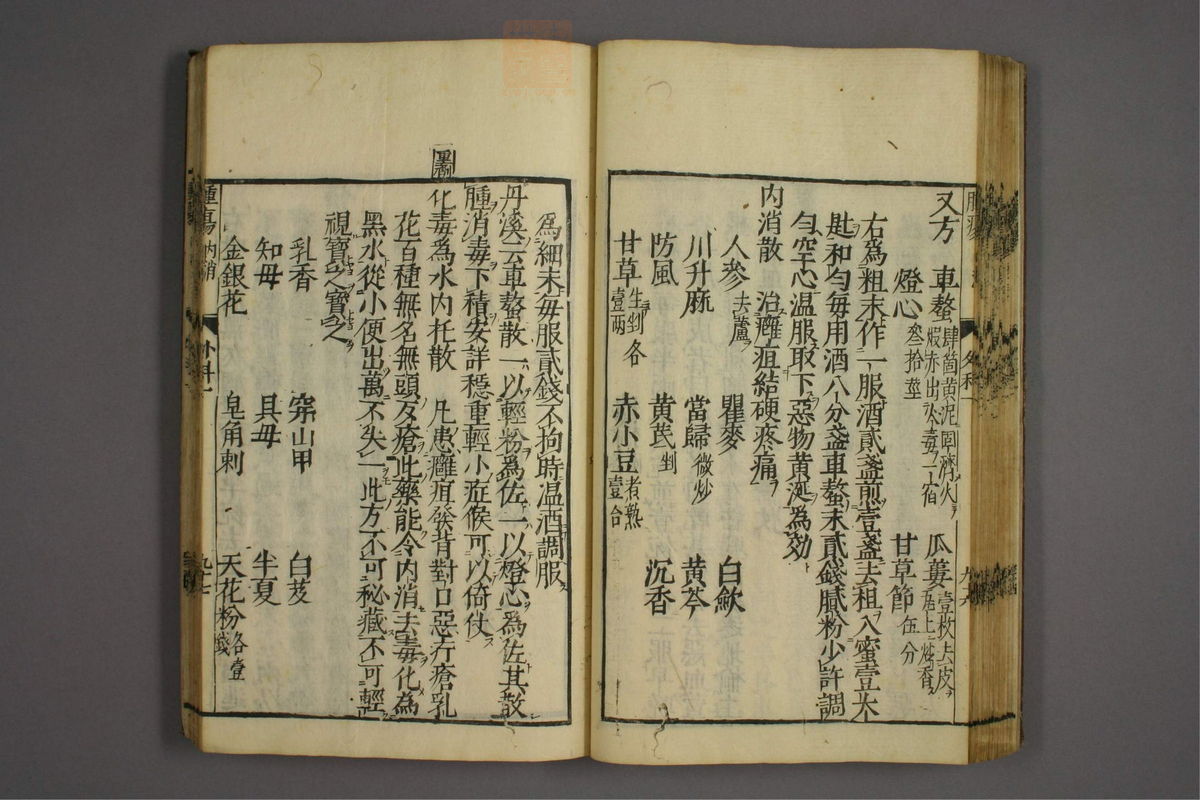 又方 車螯 肆箇黄泥固濟火煅赤出火毒一宿 瓜蔞 壹枚去皮
燈心 叁拾莖 甘草節 伍分
右為粗末作一服酒貳盞煎壹盞去柤入蜜壹大
匙和匀毎用酒八分盞車螯末貳錢膩粉少許調
匀空心温服取下惡物黄涎為効
内消散 治癰疽結硬疼痛
人參 去蘆 瞿麥 白歛
川升麻 當歸 微炒 黄芩
防風 黄芪 剉 沉香
甘草 生剉壹两 各 赤小豆 煮熟壹合
為細末毎服貳錢不拘時温酒調服
丹溪云車螯散一以輕粉為佐一以燈心為佐其散
腫消毒下積安詳穩重輕小症候可以倚仗
化毒為水内托散 凡患癰疽發背對口惡疔瘡乳
花百種無名無頭歹瘡此藥能令内消去毒化為
黑水從小便出萬不失一此方不可秘藏不可輕
視寳之寳之
乳香 穿山甲 白芨
知母 貝母 半夏
金銀花 皂角刺 天花粉 各壹錢
腫瘍 内消 外科一 九十七